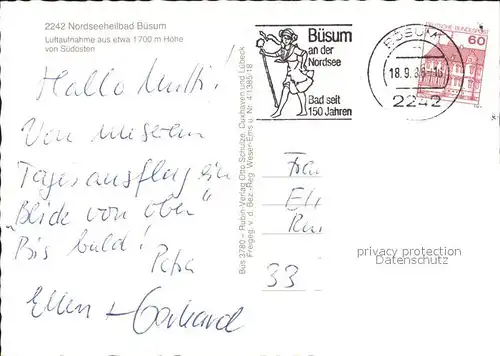 2242 Nordseeheilbad Büsum
Luftaufnahme aus etwa 1700 m Höhe
von Südosten
Hallo Mutti!
Von unserem
Tagesausflug ein
"Blick von oben"
Bis bald!
Petra
Ellen + Gerhard
Bus 3780 – Rubin Verlag Otto Schulze, Cuxhaven und Lübeck
Freigeg. v. d. Bez.-Reg. Weser-Ems u. Nr. 41385/18
Büsum
an der
Nordsee
Bad seit
150 Jahren
BÜSUM
18.9.
2242
DEUTSCHE BUNDESPOST
60
Frau
33
privacy protection
Datenschutz